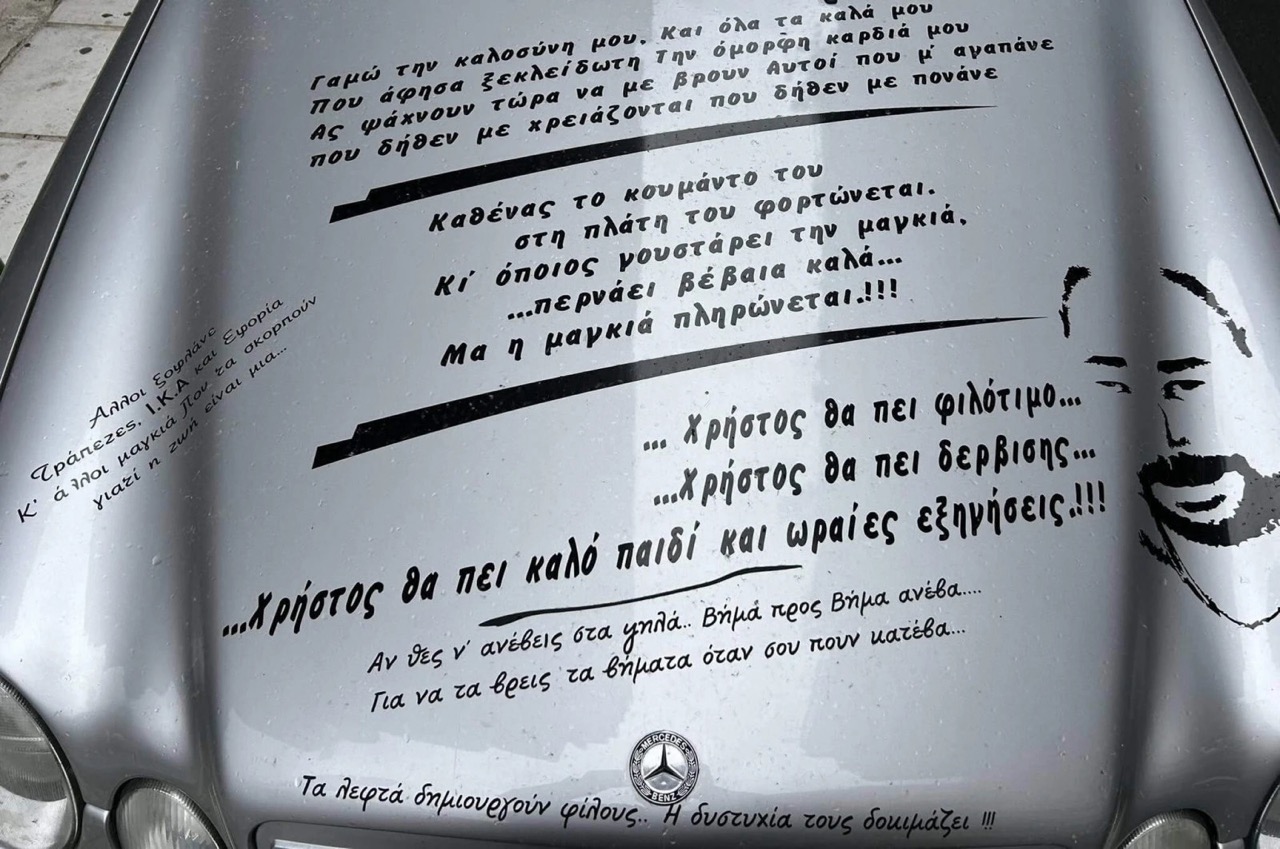 Γαμώ την καλοσύνη μου. Και όλα τα καλά μου
Που άφησα ξεκλείδωτη Την όμορφη καρδιά μου
Ας ψάχνουν τώρα να με βρουν Αυτοί που μ' αγαπάνε
που δήθεν με χρειάζονται που δήθεν με πονάνε
Καθένας το κουμάντο του
στη πλάτη του φορτώνεται.
Κι' όποιος γουστάρει την μαγκιά.
...περνάει βέβαια καλά...
Μα η μαγκιά πληρώνεται.!!!
Άλλοι ξοφλάνε
Τράπεζες, Ι.Κ.Α και Εφορία
Κ' άλλοι μαγκιά Που τα σκορπούν
γιατί η ζωή είναι μια...
... Χρήστος θα πει φιλότιμο...
...Χρήστος θα πει δερβισης...
...Χρήστος θα πει καλό παιδί και ωραίες εξηγήσεις.!!!
Αν θες ν' ανέβεις στα ψηλά.. Βήμά προς Βήμα ανέβα....
Για να τα βρεις τα βήματα όταν σου πουν κατέβα...
MERCEDES
BENZ
Τα λεφτά δημιουργούν φίλους.. Η δυστυχία τους δοκιμάζει !!!